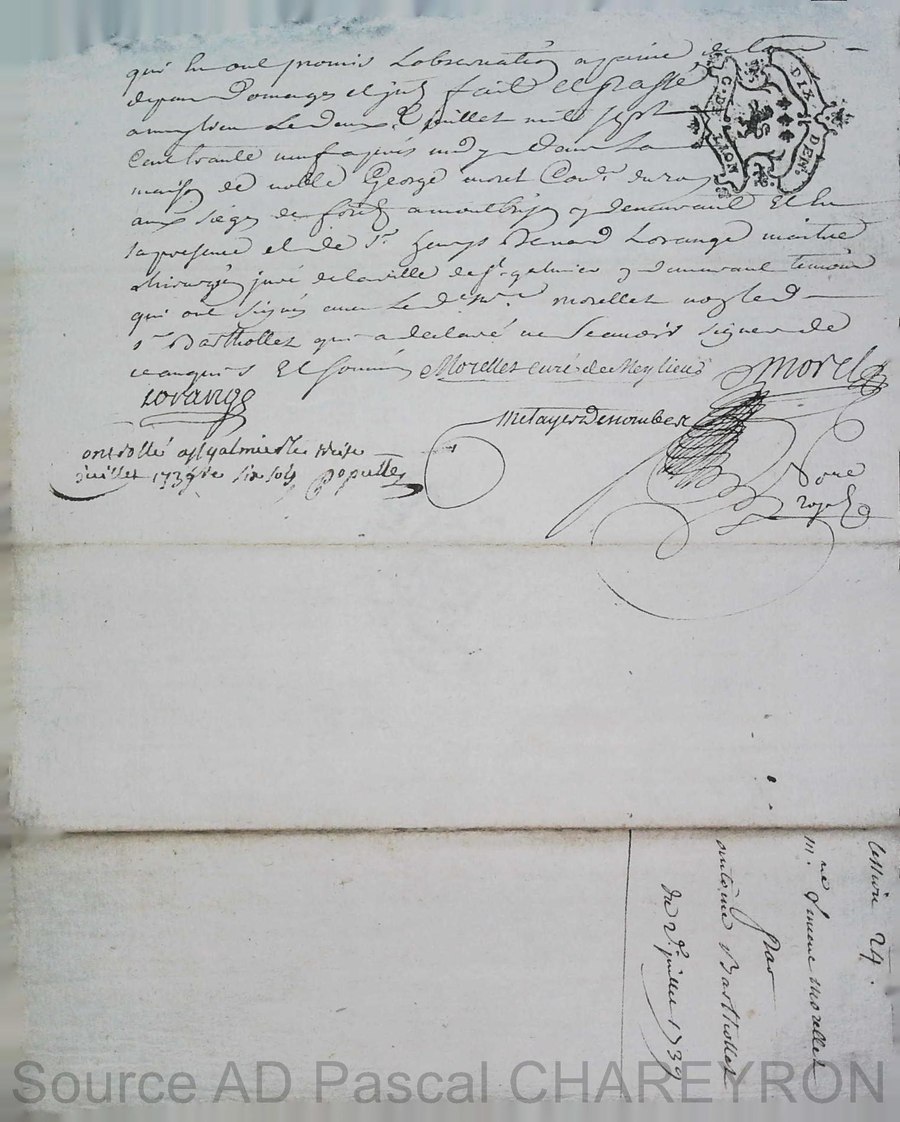 qui lui ont promis L'observation a peine de tous
depens Domages et jnts fait et passé
a meylieu Le deux.e Juillet mil sept
Cent trente neuf apres midy Dans La
maison de noble George morel Cons.r du roy
aux sièges de forest a montbrison y demeurant Et En
sa presence et de S.r Bernard Lorange maitre
chirurgien juré de la ville de S.t galmier y demeurant temoins
qui ont signés avec Le d. morellet non led.
S.r Barthollet qui a declaré ne scavoir signer de
ce enquis Et sommé Morellet curé de Meylieu Morel
Lorange
Metayer Denombes
ontrollé a St galmier le treize
juillet 1739 six sols Populle
No.re
royal
Cession 24.
m.re morellet
par
antoine Barthollet
du 2.e juillet 1739
C. DE LYON
DIX DEN.
Source AD Pascal CHAREYRON